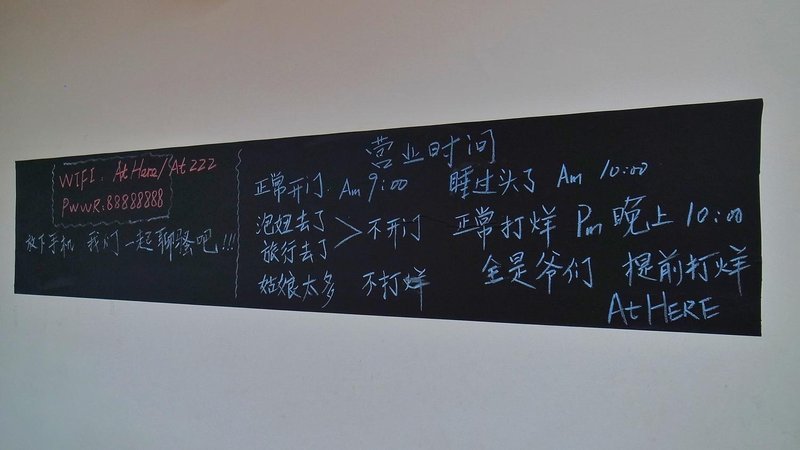 WIFI: At Here/At222
PWWR:88888888
放下手机 我们一起聊骚吧!!!
营业时间
正常开门 Am 9:00 睡过头了 Am 10:00
泡妞去了
旅行去了
>不开门 正常打烊 Pm 晚上 10:00
姑娘太多 不打烊 全是爷们 提前打烊
At HERE